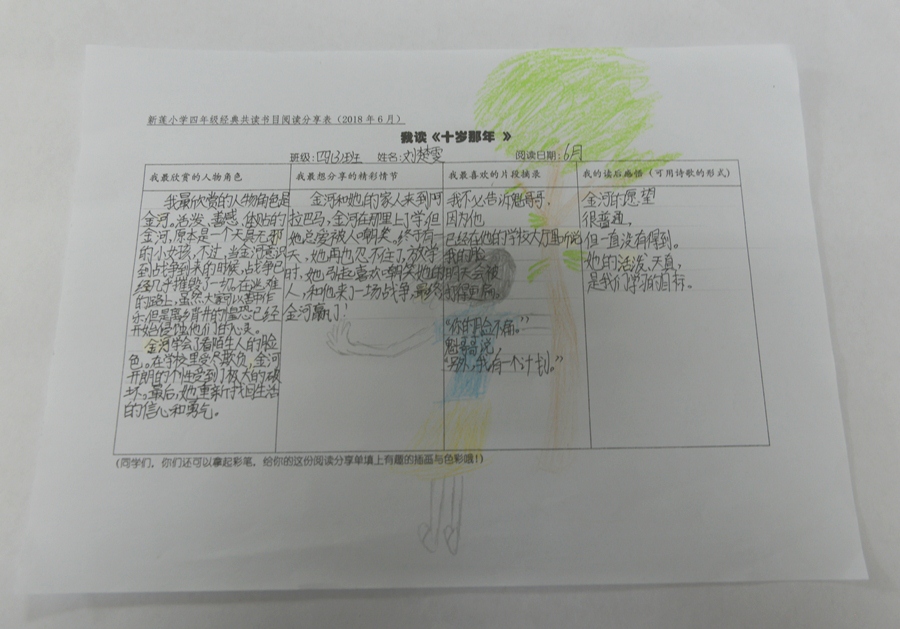 新莲小学四年级经典共读书目阅读分享表（2018年6月）
我读《十岁那年 》
班级：四(3)班 姓名：刘楚雯 阅读日期：6月
我最欣赏的人物角色
我最欣赏的人物角色是
金河。活泼、善感、体贴的
金河,原本是一个天真无邪
的小女孩,不过,当金河意识
到战争到来的时候,战争已
经几乎摧毁了一切。在逃难
的路上,虽然大家以苦作
乐,但是离乡背井的惶恐已经
开始侵蚀他们的心灵。
金河学会了看陌生人的脸
色。在学校里受尽欺负,金河
开朗的个性受到了极大的破
坏。最后,她重新找回生活
的信心和勇气。
我最想分享的精彩情节
金河和她的家人来到阿
拉巴马,金河在那里上学,但
她总爱被人嘲笑。终于有一
天,她再也忍不住了,放学
时,她引起喜欢嘲笑她的
人,和他来了一场战争,最终
金河赢了!
我最喜欢的片段摘录
我不必告诉魁哥哥,
因为他
已经在他的学校大厅里听说
我的脸
明天会被
打得更扁。
“你的脸不扁。”
魁哥哥说
“另外,我有一个计划。”
我的读后感悟（可用诗歌的形式）
金河的愿望
很普通,
但一直没有得到。
她的活泼、天真,
是我们学习的目标。
(同学们，你们还可以拿起彩笔，给你的这份阅读分享单填上有趣的插画与色彩哦!)